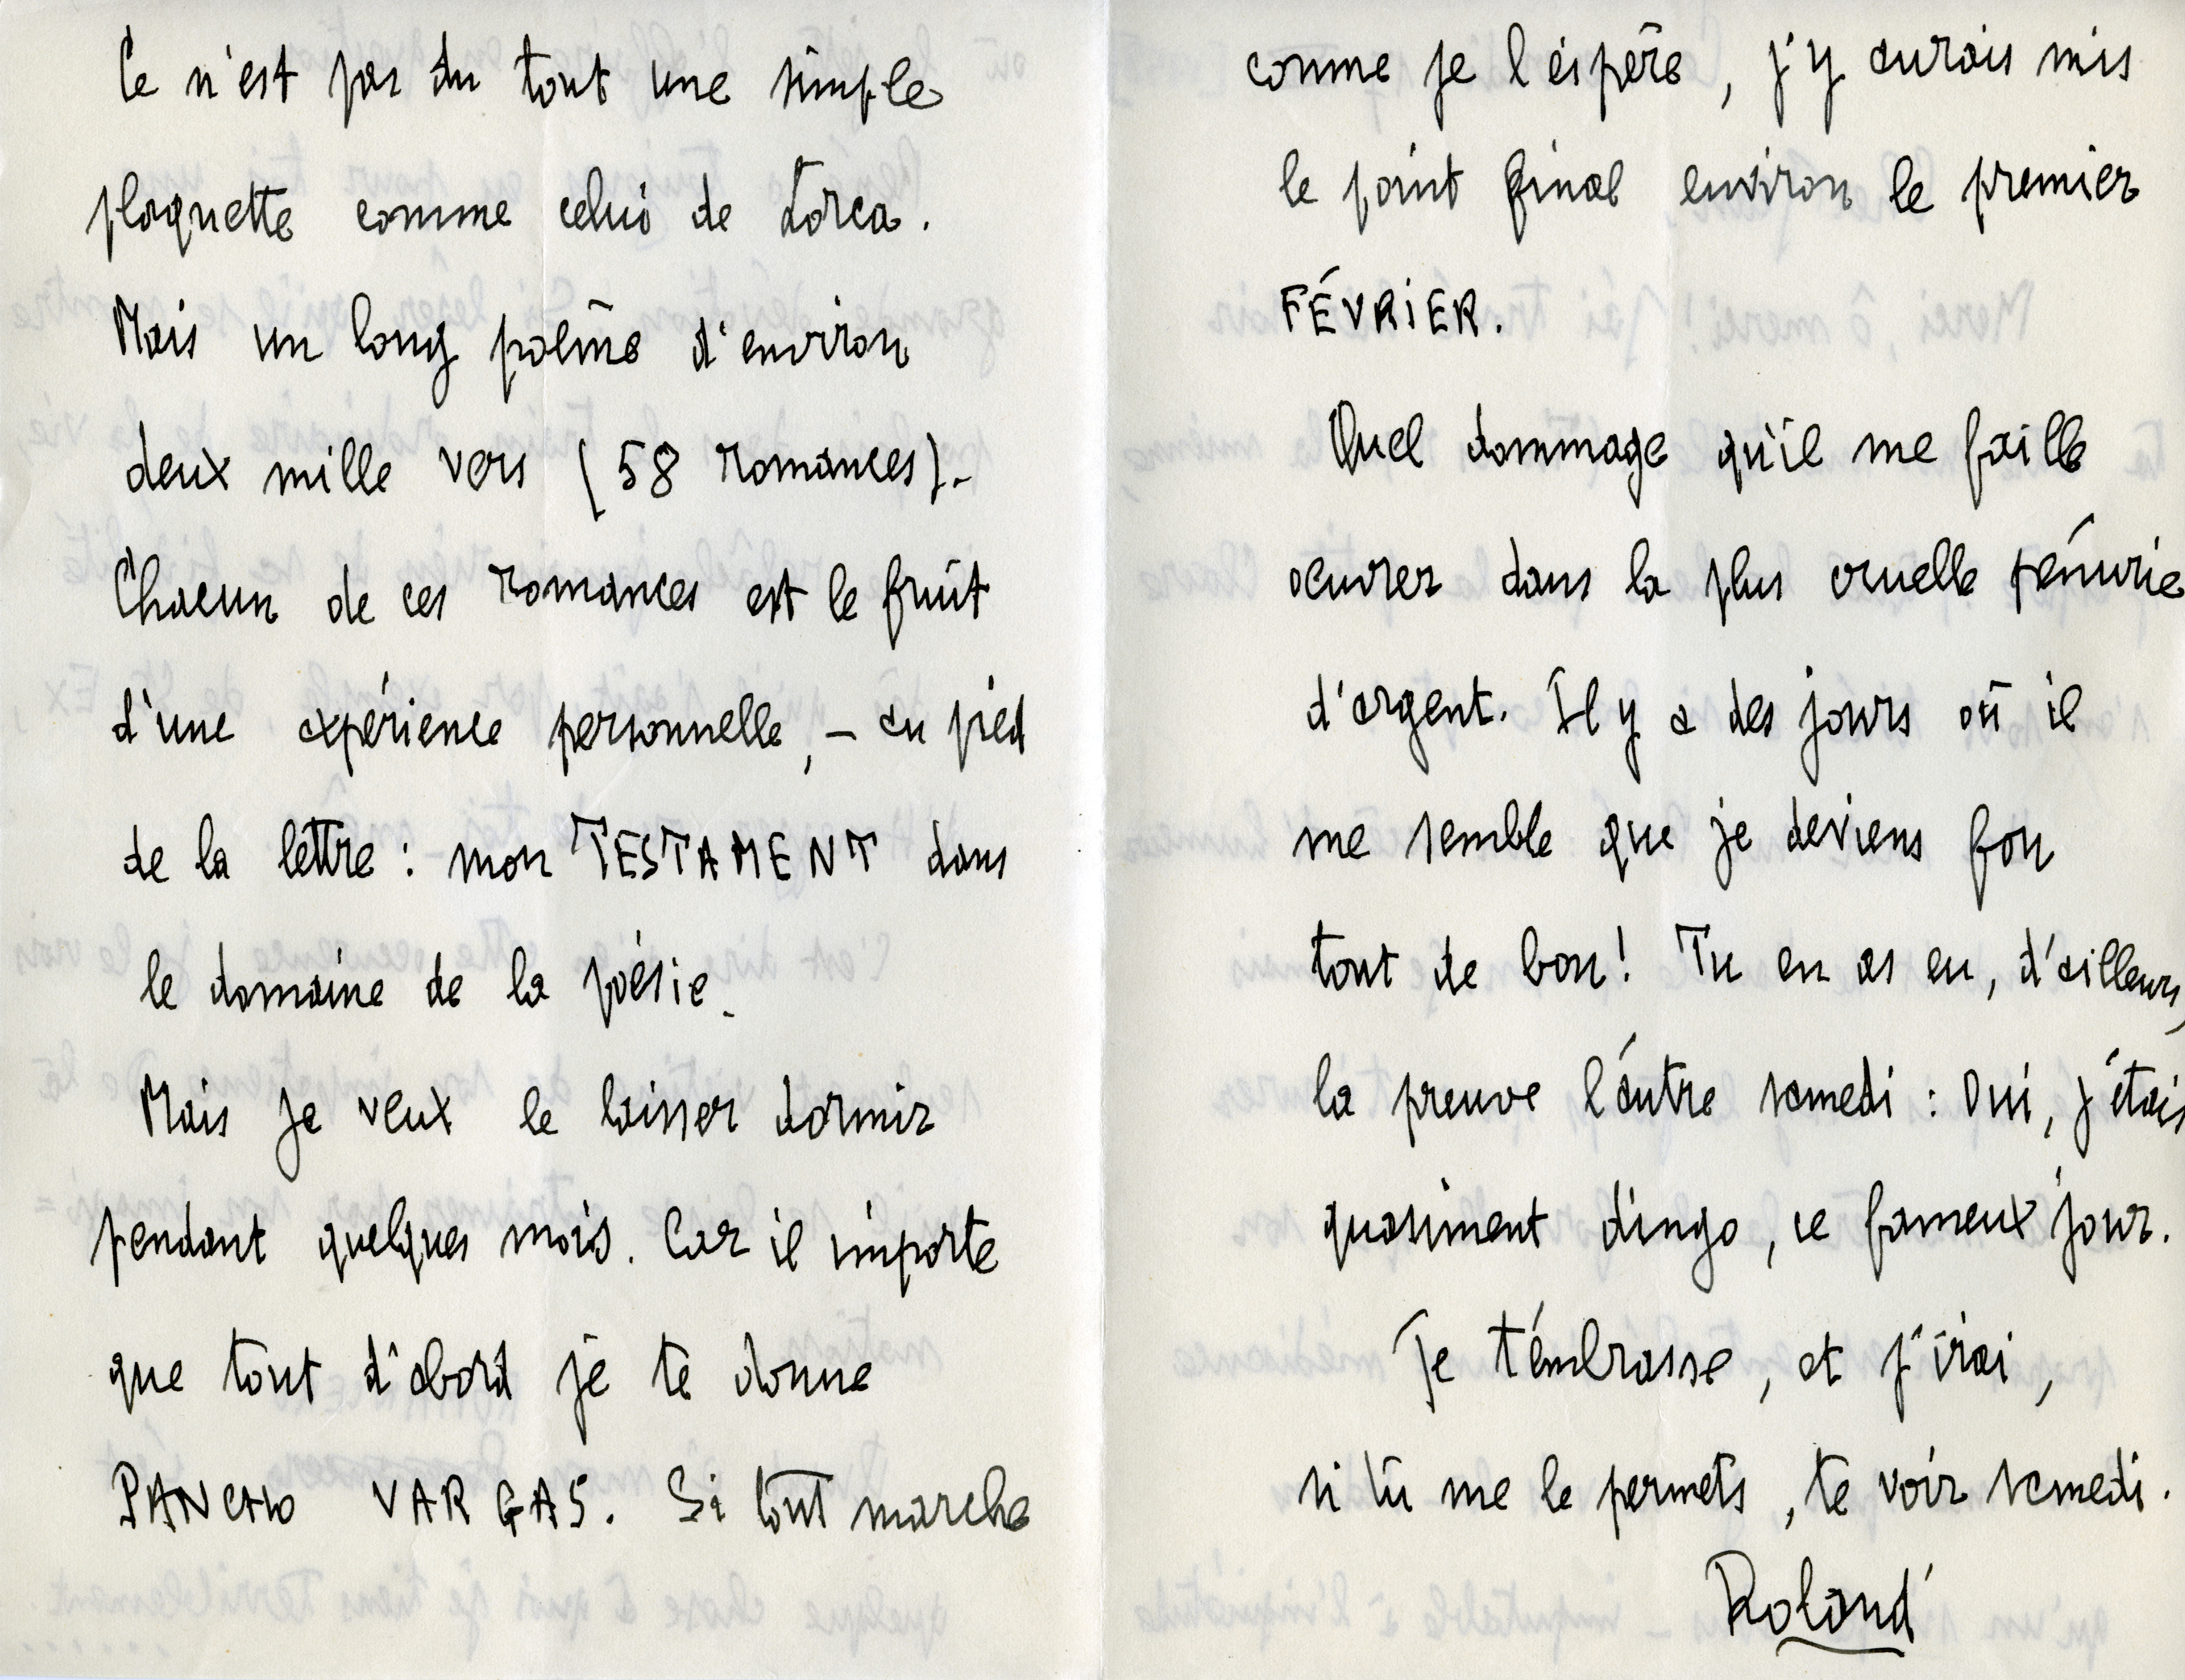 Ce n'est pas du tout une simple
plaquette comme celui de Lorca.
Mais un long poème d'environ
deux mille vers (58 romances).-
Chacun de ces romances est le fruit
d'une expérience personnelle, - au pied
de la lettre : mon TESTAMENT dans
le domaine de la poésie.
Mais je veux le laisser dormir
pendant quelques mois. Car il importe
que tout d'abord je te donne
PANCHO VARGAS. Si tout marche
comme je l'espère, j'y aurais mis
le point final environ le premier
FÉVRIER.
Quel dommage qu'il me faille
oeuvrer dans la plus cruelle pénurie
d'argent. Il y a des jours où il
me semble que je deviens fou
tout de bon! Tu en as eu, d'ailleurs,
la preuve l'autre samedi : Oui, j'étais
quasiment dingo, ce fameux jour.
Je t'embrasse, et j'irai,
si tu me le permets, te voir samedi.
Roland